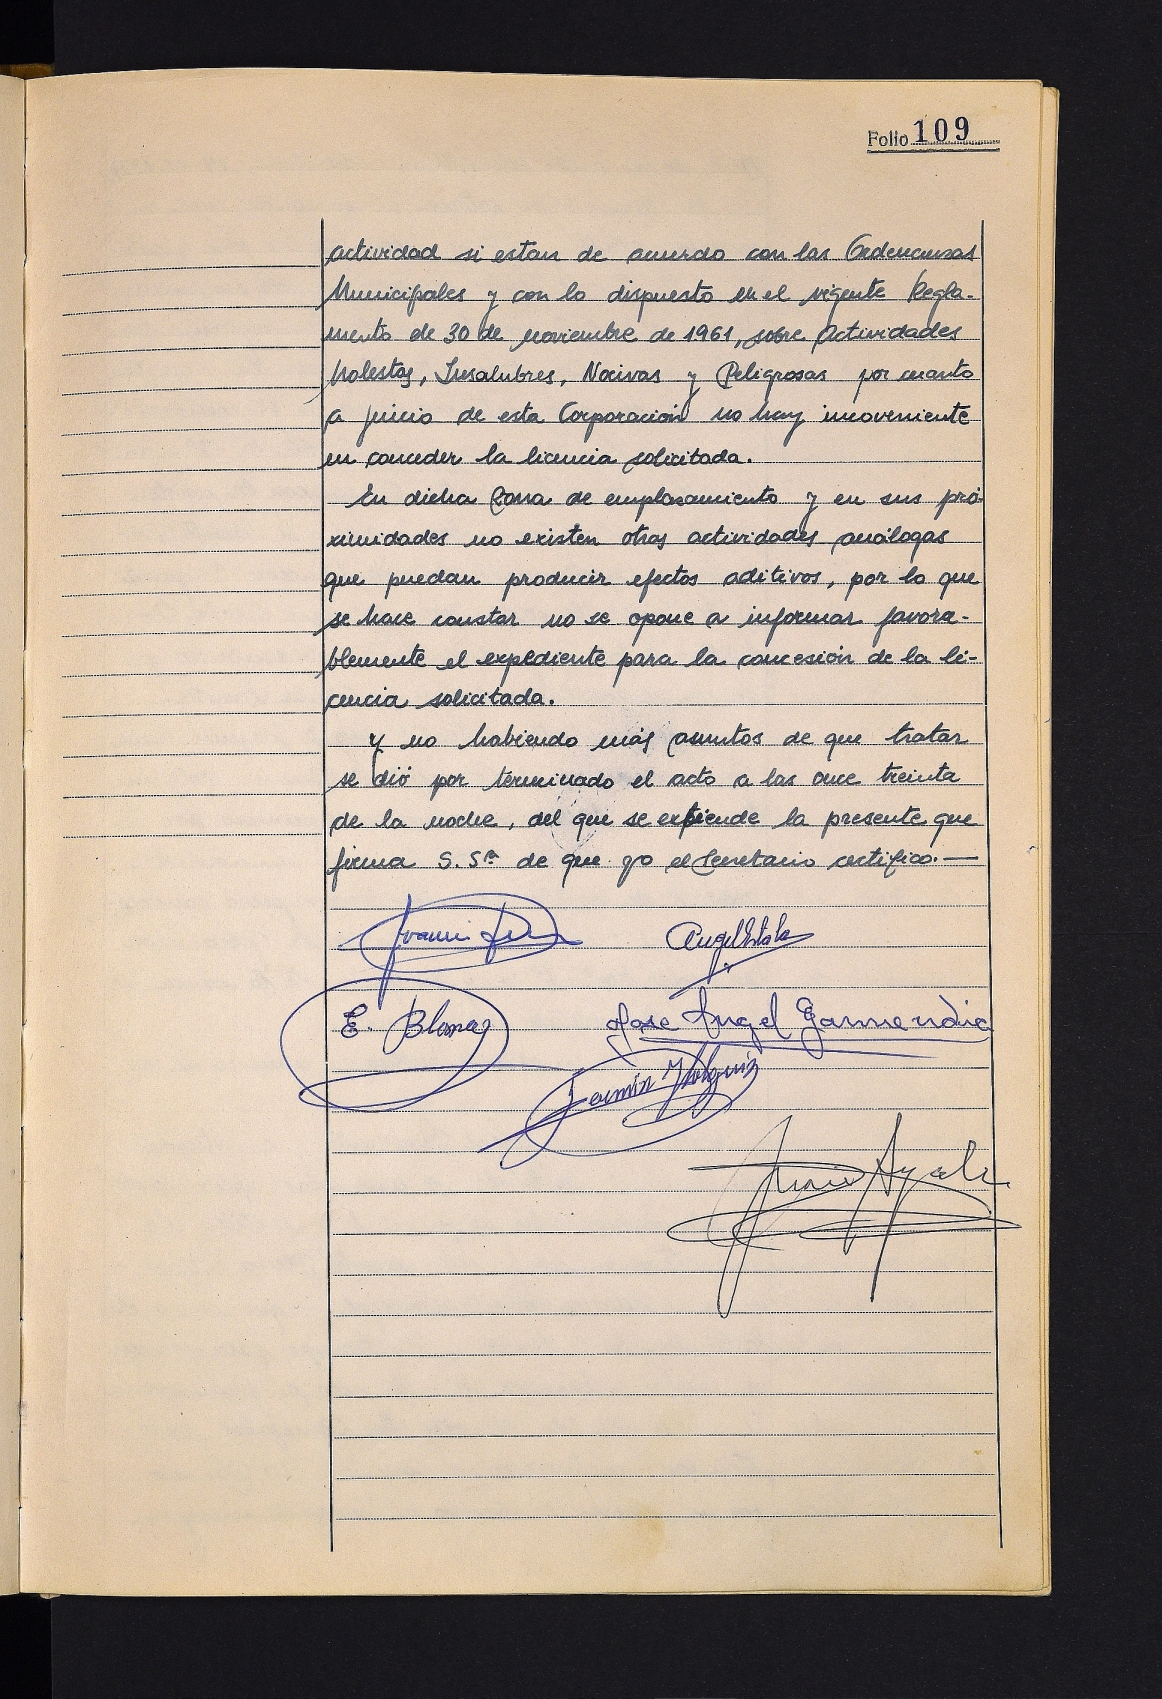 Folio 109
actividad si estan de acuerdo con las Ordenanzas
Municipales y con lo dispuesto en el vigente Regla-
mento de 30 de noviembre de 1961, sobre Actividades
Molestas, Insalubres, Nocivas y Peligrosas por cuanto
a juicio de esta Corporación no hay incoveniente
en conceder la licencia solicitada.
En dicha Zona de emplazamiento y en sus pró
ximidades no existen otras actividades análogas
que puedan producir efectos aditivos, por lo que
se hace constar no se opone a informar favora-
blemente el expediente para la concesión de la li-
cencia solicitada.
Y no habiendo más asuntos de que tratar
se dió por terminado el acto a las once treinta
de la noche, del que se expiende la presente que
firma S. Sª de que yo el Secretario certifico.—
Angel
E. Blanco
Jose Angel Garmendia
Fermin Holguin
Ayala